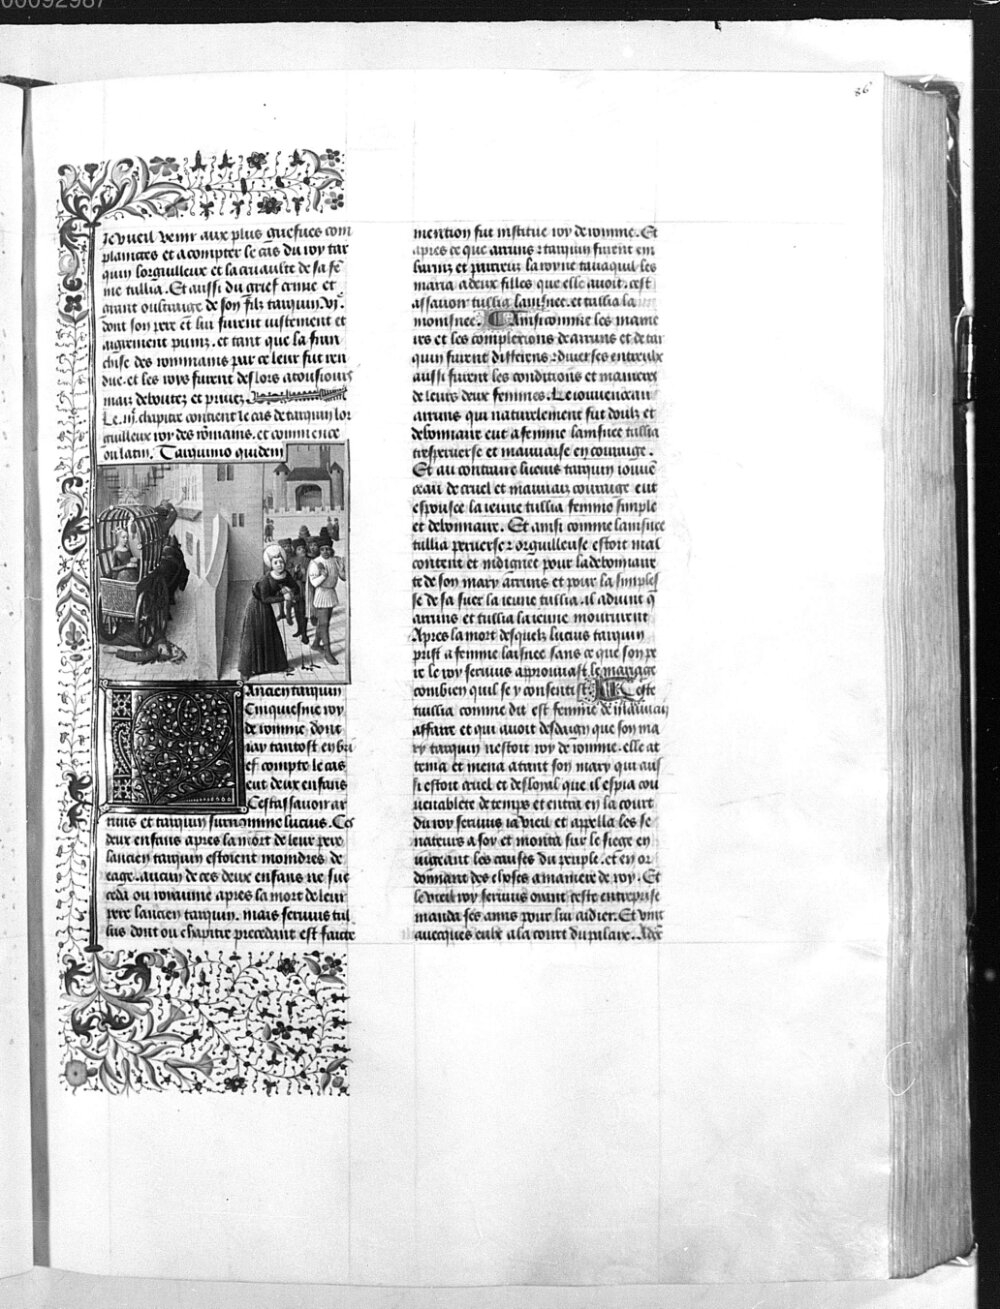 00092987
86
Je vueil venir aux plus griefues com
plainctes et a compter le cas du roy tar
quin lorguilleux et la cruaulte de sa fe
me tullia. Et aussi du grief crime et
grant oultraige de son filz tarquin
dont son pere et lui furent iustement et
aigrement puniz. et tant que la fran
chise des rommains par ce leur fut ren
due. et les roys furent des lors a tousiours
mais deboutez et priuez
Le .iii. chapitre contient le cas de tarquin lor
guilleux roy des rommains. et commence
ou latin. Tarquinio quidem
Ancien tarquin
Cinquiesme roy
de romme dont
iay tantost en bri
ef compte le cas
eut deux enfans
Cestassauoir ar
runs et tarquin surnomme lucius. Ces
deux enfans apres la mort de leur pere
lancien tarquin estoient moindres de
eage. aucun de ces deux enfans ne suc
ceda ou royaume apres la mort de leur
pere lancien tarquin. mais seruius tul
lus dont ou chapitre precedant est faicte
mention fut institue roy de romme. Et
apres ce que arruns et tarquin furent em
barniz et parcreuz la royne tanaquil les
maria a deux filles que elle auoit. cest
assauoir tullia lainsnee. et tullia la
moinsnee. Ainsi comme les maine
res et les complexions de arruns et de tar
quin furent differens et diuerses entreulx
aussi furent les conditions et manieres
de leurs deux femmes. Le iouuenceau
arruns qui naturelement fut doulz et
debonnaire eut a femme lainsnee tullia
tresperuerse et mauuaise en couraige.
Et au contraire lucius tarquin iouue
ceau de cruel et mauuaiz couraige eut
espousee la ieune tullia femme simple
et debonnaire. Et ainsi comme lainsnee
tullia peruerse et orguilleuse estoit mal
content et indignee pour la debonnaire
te de son mary arruns et pour la simples
se de sa suer la ieune tullia. il aduint q
arruns et tullia la ieune moururent
Apres la mort desquelz lucius tarquin
prist a femme laisnee sans ce que son pe
re le roy seruius approuuast le mariage
combien quil se y consentist. Ceste
tullia comme dit est femme de mauuaiz
affaire et qui auoit desdaign que son ma
ry tarquin nestoit roy de romme. elle at
tenta et mena a tant son mary qui aus
si estoit cruel et desloyal que il espia cou
uenablete de temps et entra en la court
du roy seruius ia vieil et appella les se
nateurs a soy et monta sur le siege en
iugeant les causes du peuple. et en or
donnant des choses a maniere de roy. Et
le vieil roy seruius oiant ceste entreprise
manda ses amis pour lui aidier. Et vint
auecques eulx a la court du palaix.